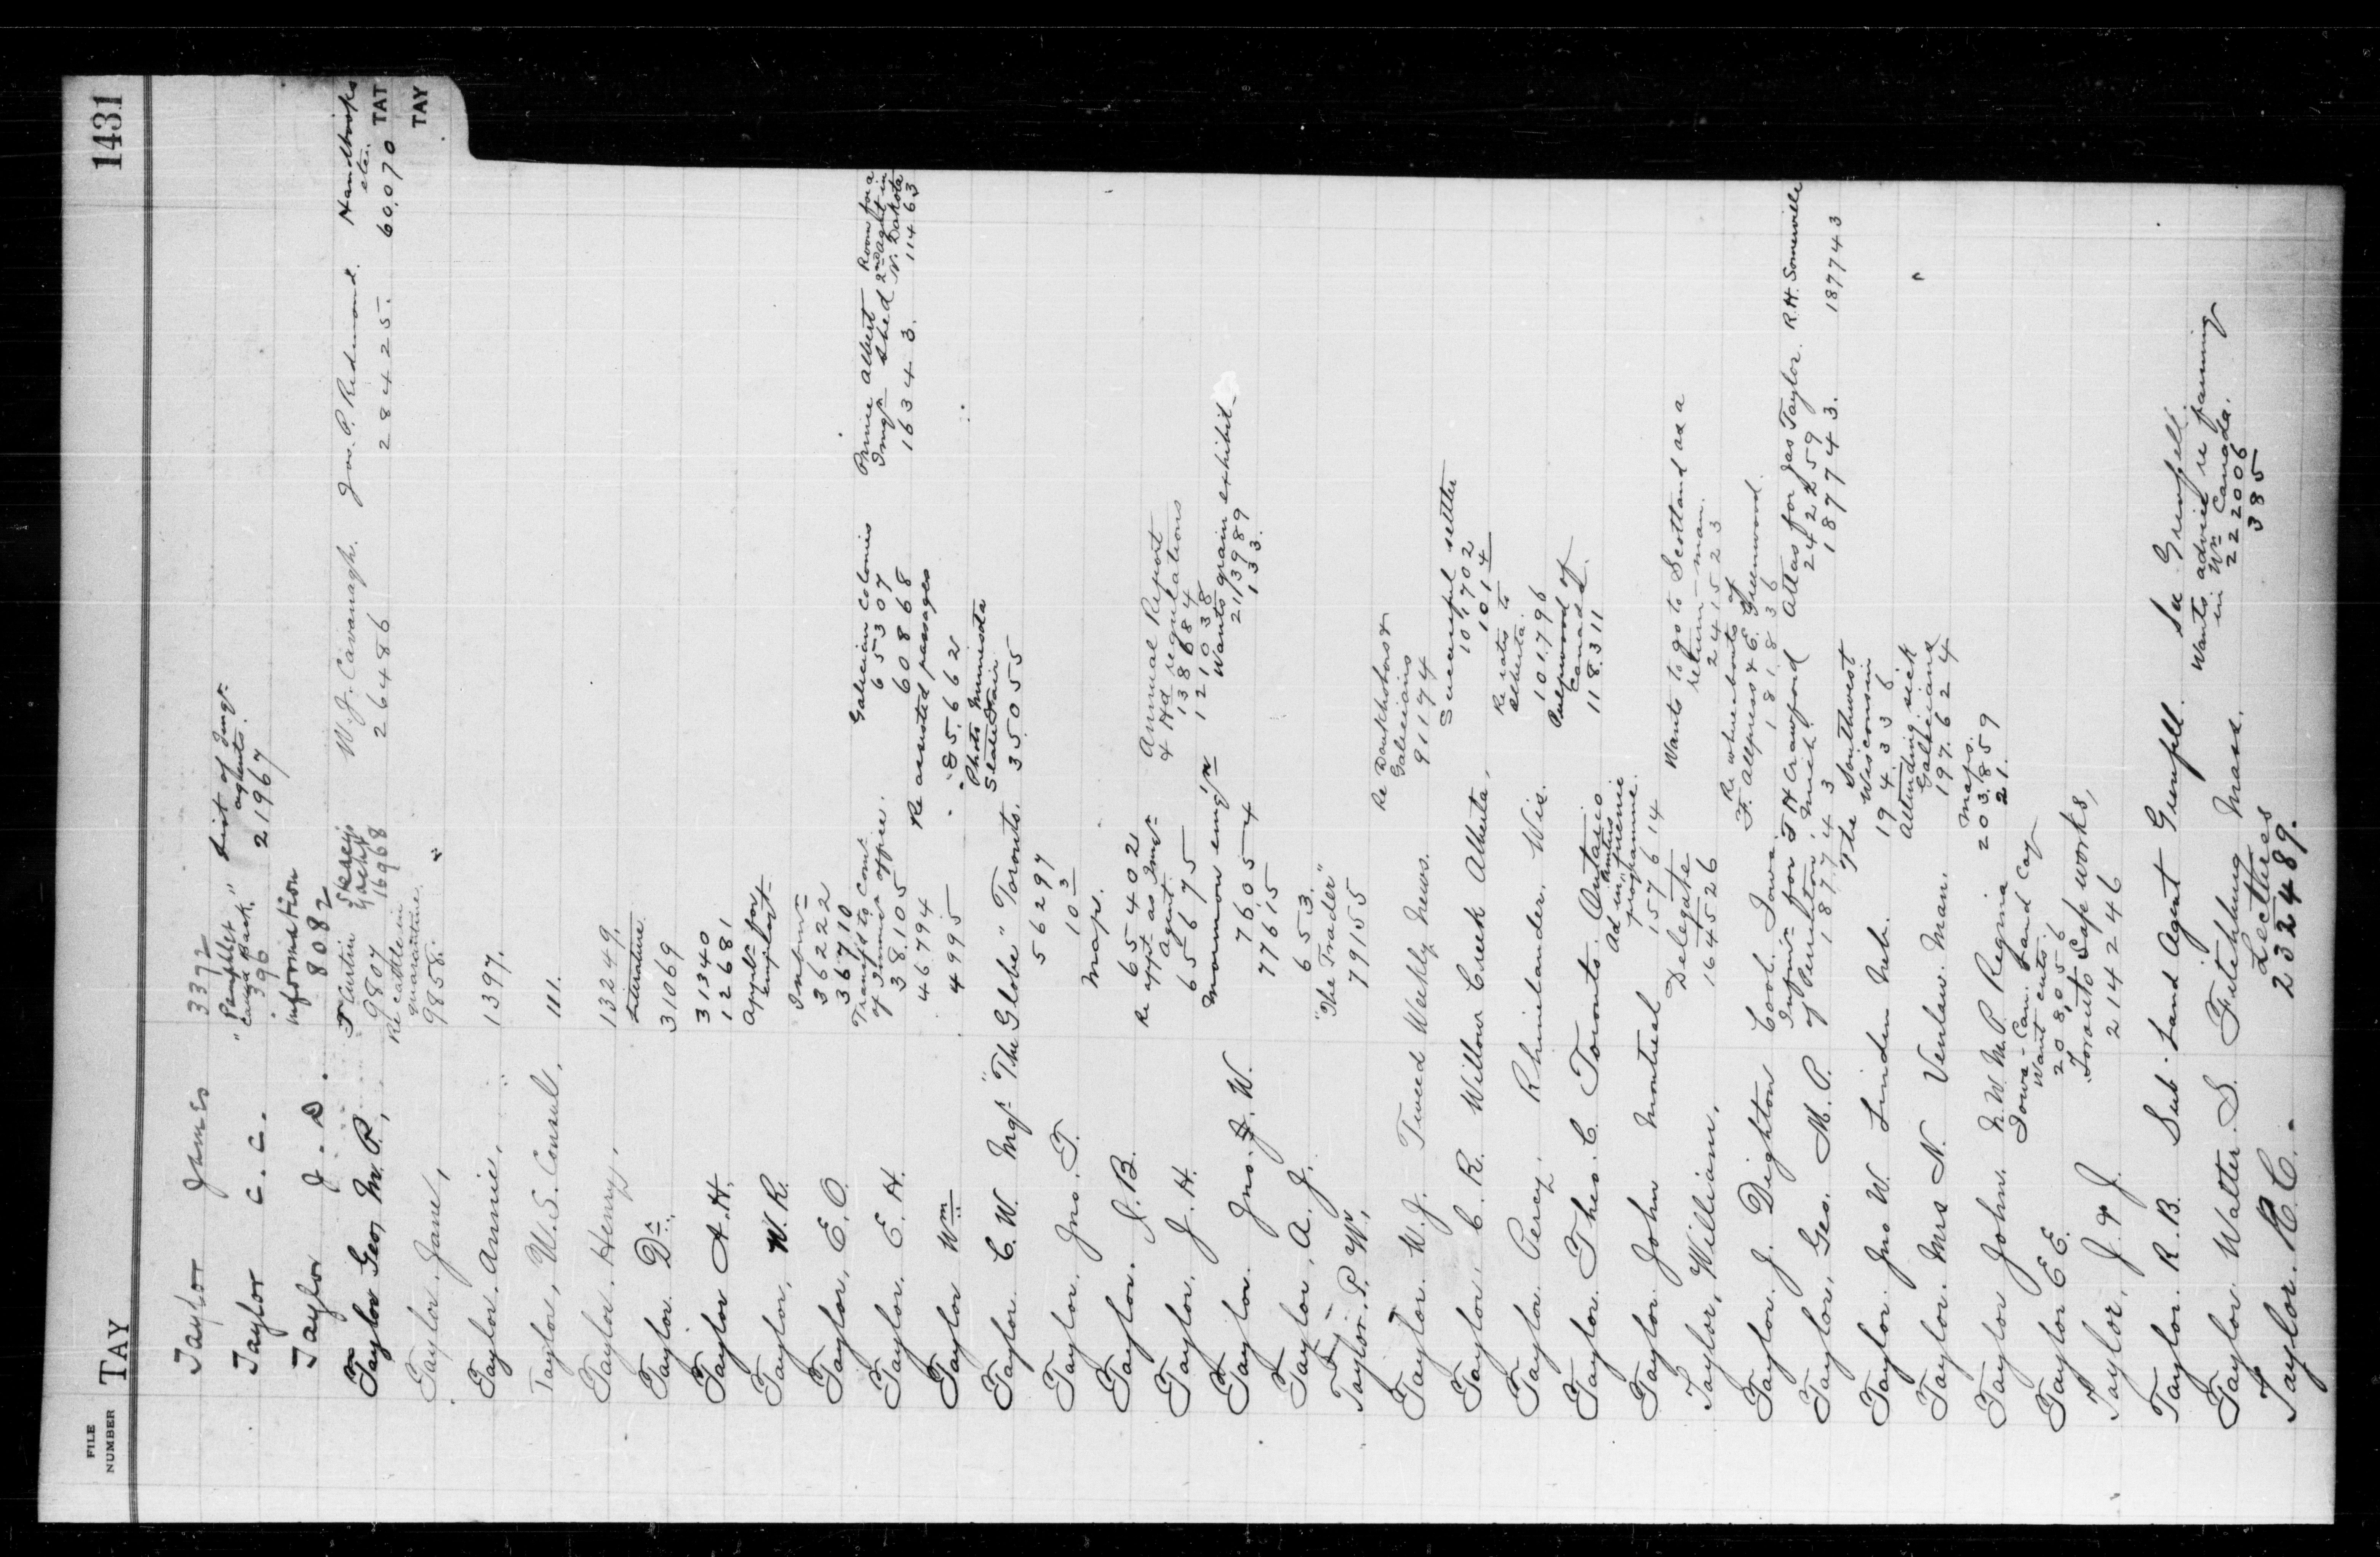 FILE NUMBER TAY 1431
TAT
TAY
Taylor James 3392
Taylor C. C. "Pamphlet Canada Back," 396 List of Immgn agents. 21967
Taylor J. D. information 8082
Taylor Geo, M. P., T Curtin 9807 16968 W. J. Cavanagh. 26486 Jas. P. Redmond. 28425. Handbooks etc. 60,070
Taylor. Jane, Re cattle in quarantine. 9858.
Taylor. Annie, 1397.
Taylor, U. S. Consul, 111.
Taylor. Henry, 13249.
Taylor. Dr., Literature. 31069
Taylor A. H. 31340
12681
Taylor, W. R. Appln for emplmt
Taylor, E. O. Informn
36222
36710
Taylor. E. H. Transf'd to Comr of Immgn office. 38,105 Galician Colonies 65307 Prince Albert Imgn Shed 16343. Room for a 2nd agent in N. Dakota 11463
46794 60868
Taylor Wm 4995 Re assisted passages 85,662
Taylor. C. W. Mgr "The Globe" Toronto. Photo Minnesota State Fair. 35055
Taylor. Jno. T. 56297
103
Taylor. J. B. Maps.
65402
Taylor, J. H. Re appt as Immgn Agent 65675 Annual Report & Hd regulations 138684
Taylor. Jno. J. W. Mormon emig'n 7605 121038
77615 4 Wants grain exhibit
211989
133.
Taylor, A. J. 653.
Taylor. P. W., "The Trader" 79155
Taylor. W. J. Tweed Weekly News. Re Doukhobors & Galicians 91174
Taylor, C. R. Willow Creek Alberta, Successful settler 101702
1014
Taylor Percy, Rhinelander. Wis. Re rates to Alberta. 101796
Taylor. Theo. C. Toronto. Ontario Pulpwood of Canada. 118311
Taylor. John Montreal Ad in programme. 157614
Taylor, William, Delegate 164526 Wants to go to Scotland as a return-man. 241523
Taylor. J. Dighton Cool. Iowa. Re whereabouts of F. Allpress & E. Greenwood. 181836
Taylor, Geo. M. P. Inform for T H Crawford of Pemberton, Mich. 187743 Atlas for Jas Taylor. 242259 R. H. Somerville
187743. 187743
Taylor. Jno W. Linden Neb. The Southwest Wisconsin 194336
Taylor. Mrs N. Venlaw. Man. Attending sick Galicians 197624
Taylor John. N. W. M. P. Regina Maps. 203,859
21.
Taylor E E. Iowa-Can. Land Coy Want cuts. 208,056
Taylor, J. & J. Toronto Safe works, 214246
Taylor. R. B. Sub-Land Agent Grenfell. See Grenfell.
Taylor. Walter S. Fitchburg Mass. Wants advice re farming in Wn Canada. 222006
385
Taylor. R. C. Lecttees 232489.